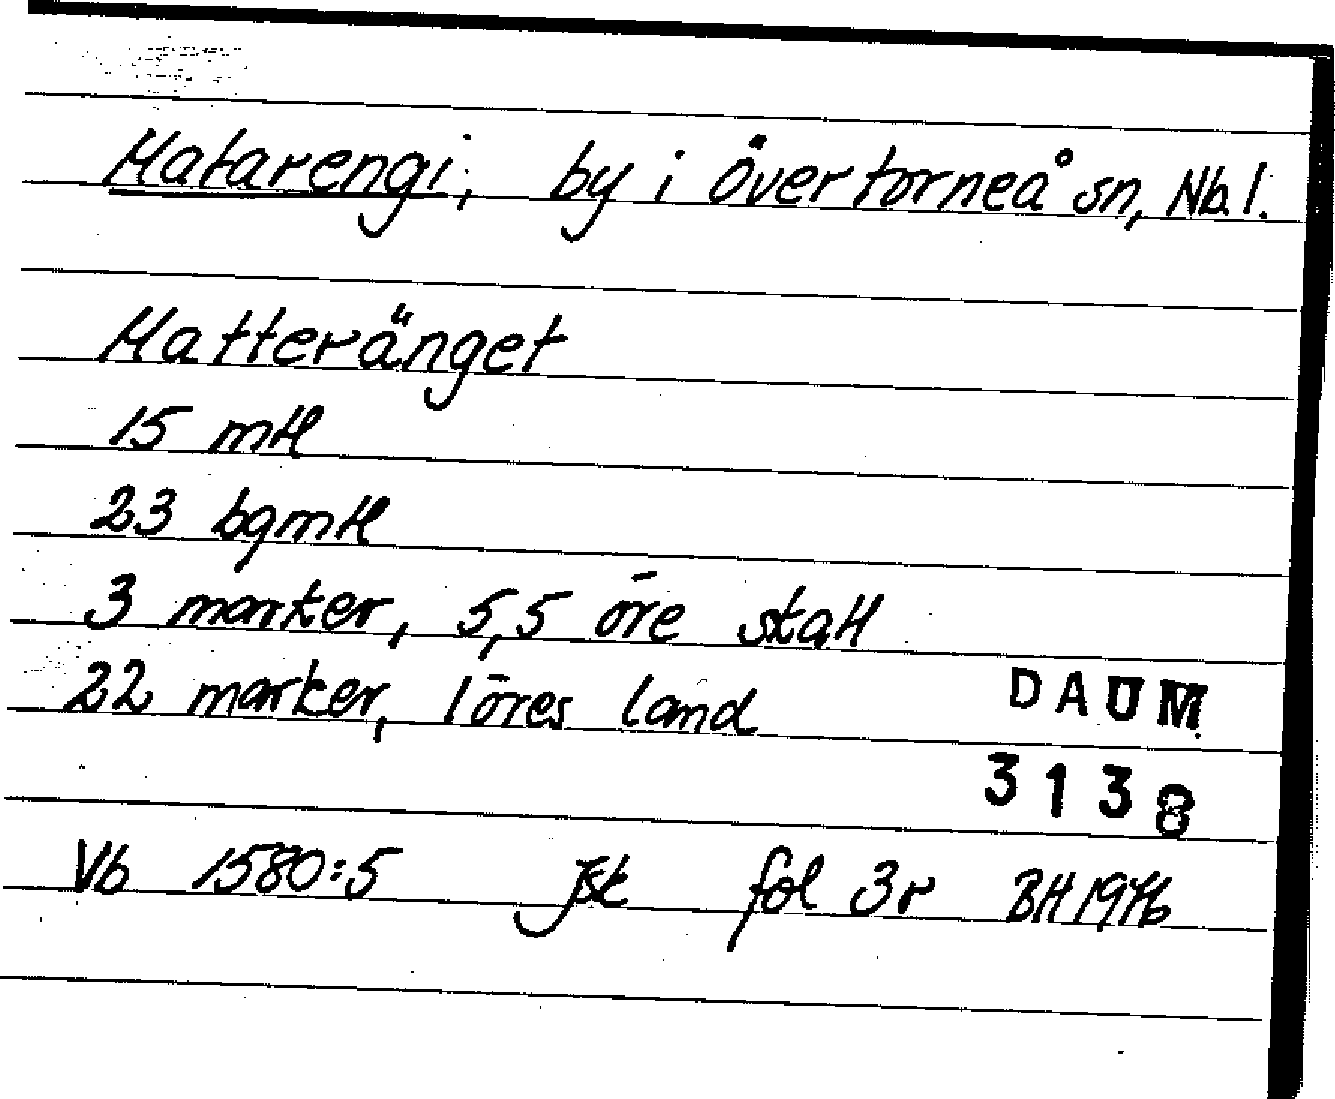 Matarengi, by i Övertorneå sn, Nb. l.
Matteränget
15 mtl
23 bgmtl
3 marker, 5,5 öre skatt
22 marker, 1 öres land
DAUM
3138
Vb 1580:5 jbk fol 3r BH 1976